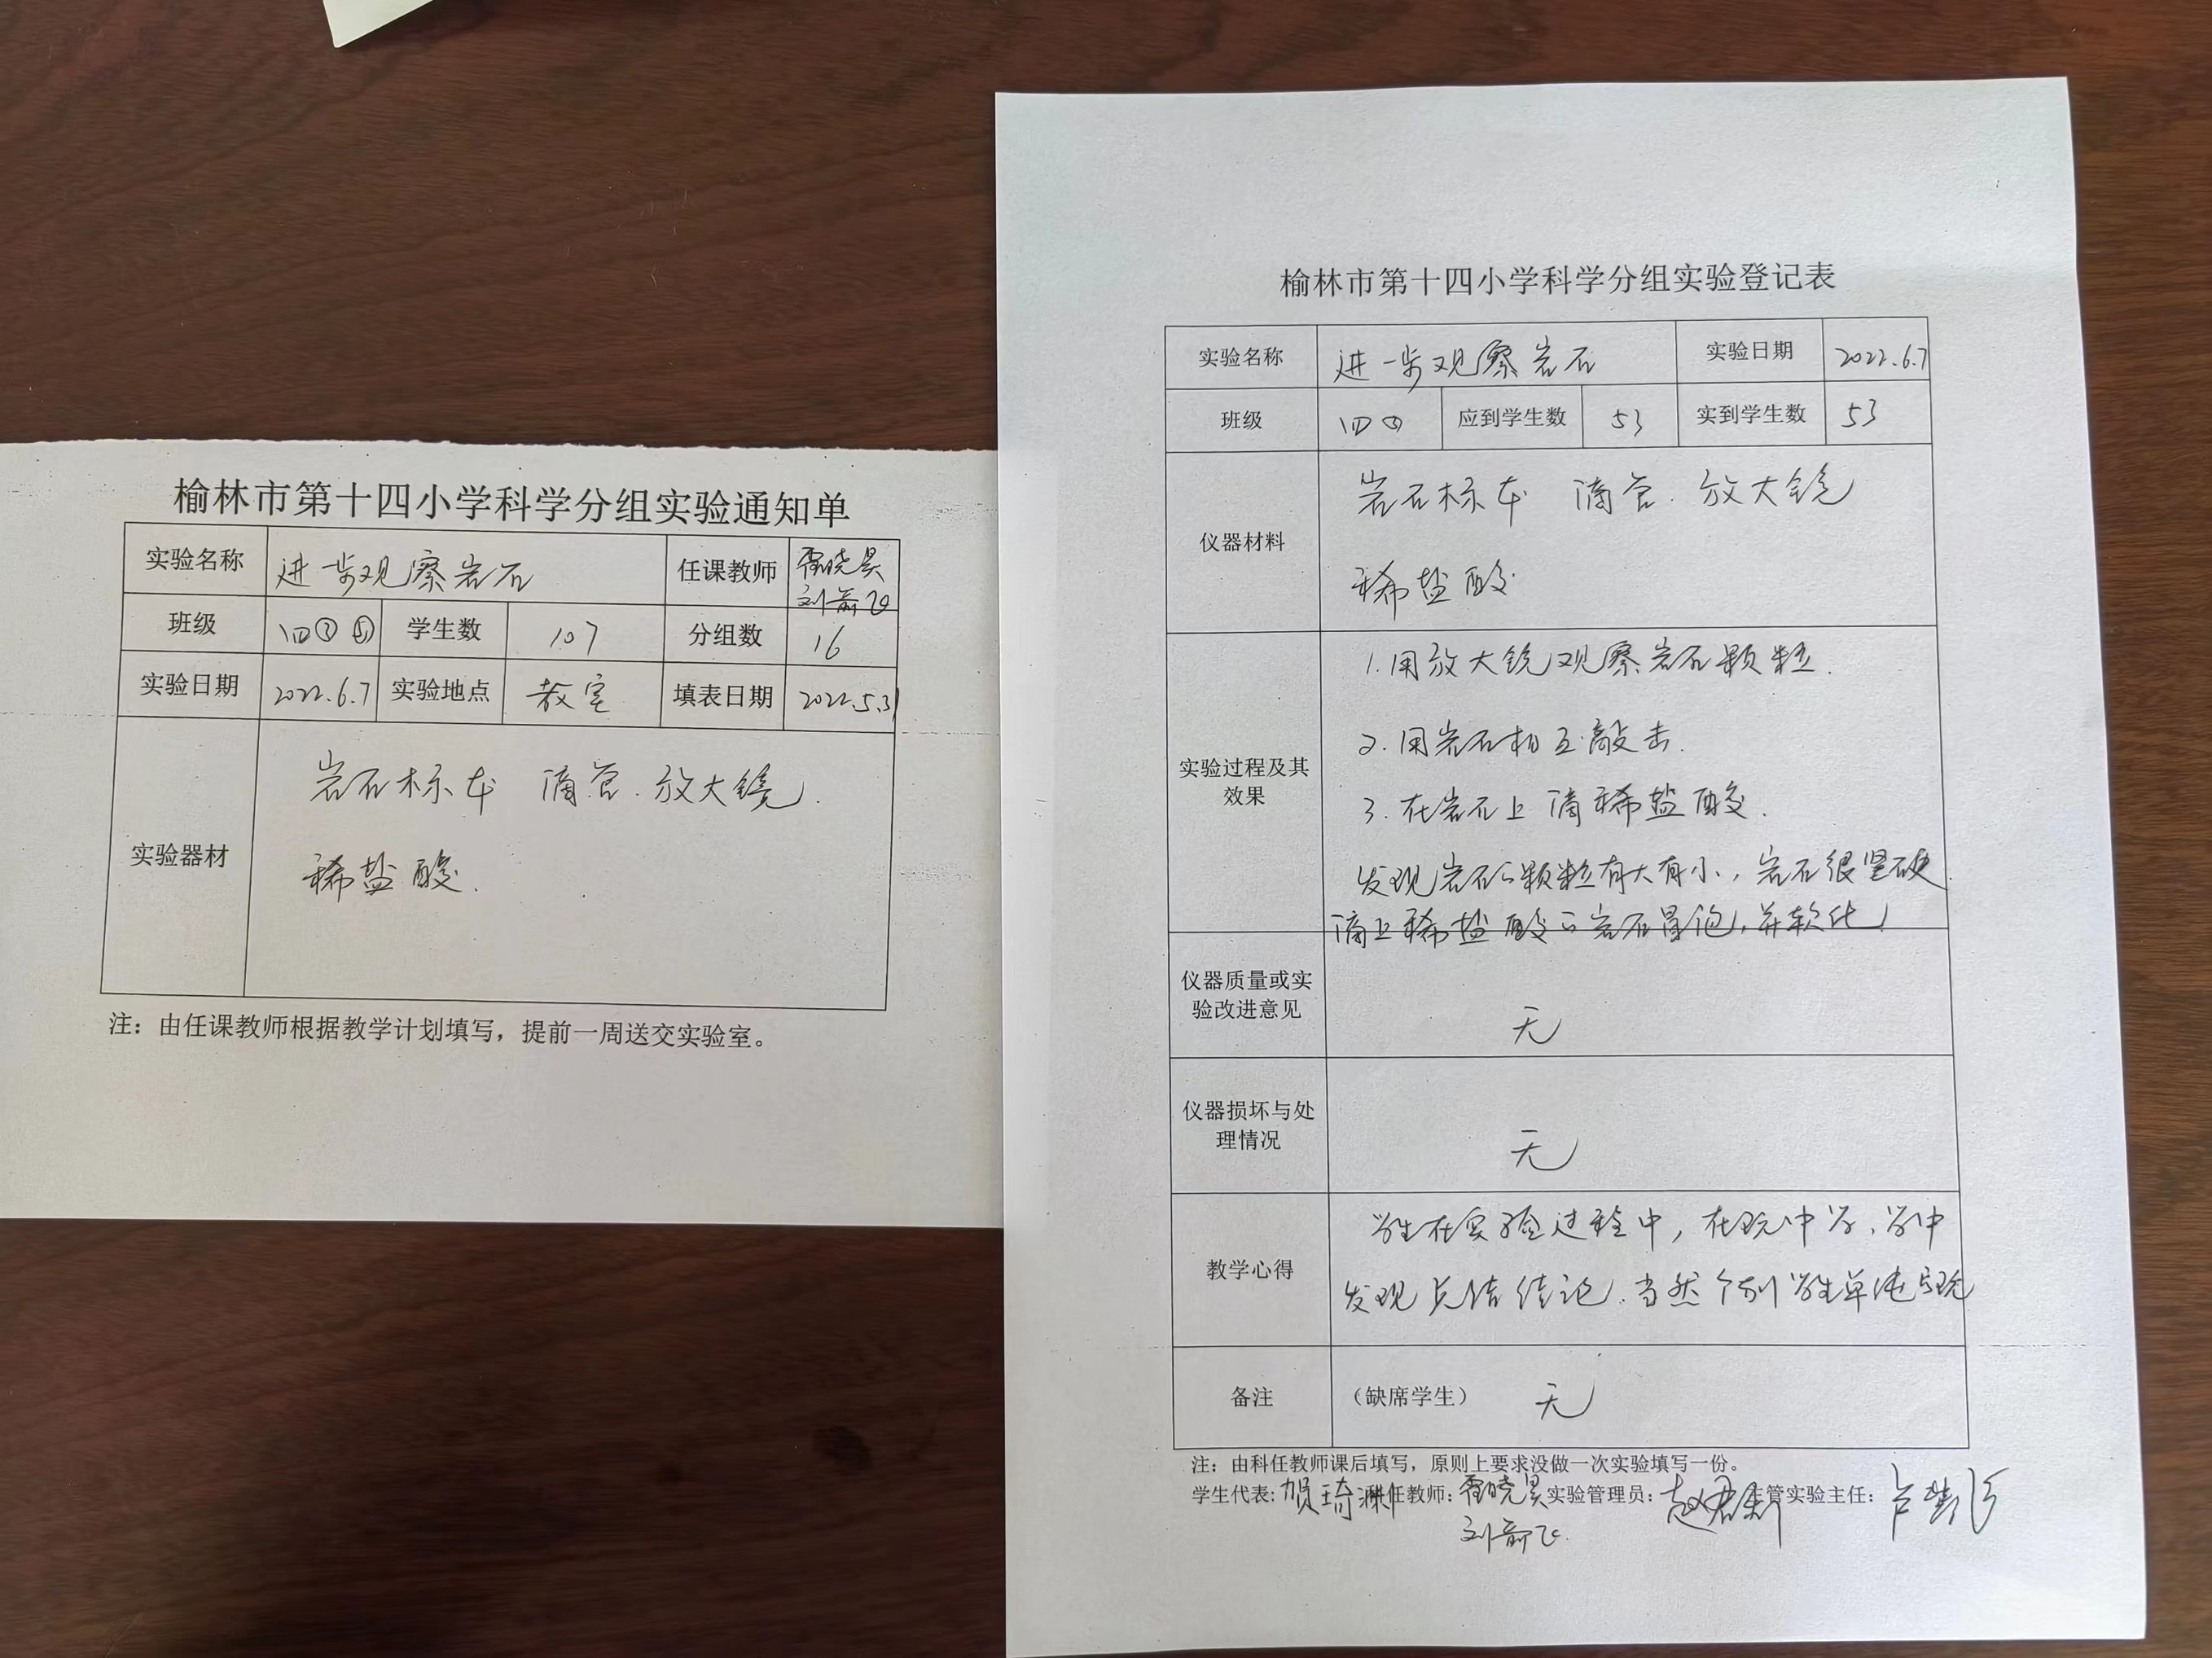 榆林市第十四小学科学分组实验通知单
实验名称 进一步观察岩石 任课教师 雷晓昊
刘前飞
班级 四 ⑤ 学生数 107 分组数 16
实验日期 2022.6.7 实验地点 教室 填表日期 2022.5.31
岩石标本 滴管.放大镜.
实验器材
稀盐酸.
注：由任课教师根据教学计划填写，提前一周送交实验室。
榆林市第十四小学科学分组实验登记表
实验名称 进一步观察岩石 实验日期 2022.6.7
班级 四 应到学生数 53 实到学生数 53
岩石标本 滴管.放大镜
仪器材料
稀盐酸
1.用放大镜观察岩石颗粒.
2.用岩石相互敲击.
实验过程及其
效果
3.在岩石上滴稀盐酸.
发现岩石的颗粒有大有小，岩石很坚硬
滴上稀盐酸的岩石冒泡，并软化
仪器质量或实
验改进意见
无
仪器损坏与处
理情况
无
学生在实验过程中，在玩中学，学中
教学心得
发现总结结论.当然个别学生单纯玩
备注 （缺席学生） 无
注：由科任教师课后填写，原则上要求没做一次实验填写一份。
学生代表: 贺琦 任教师: 雷晓昊 实验管理员: 赵君 主管实验主任:
刘前飞